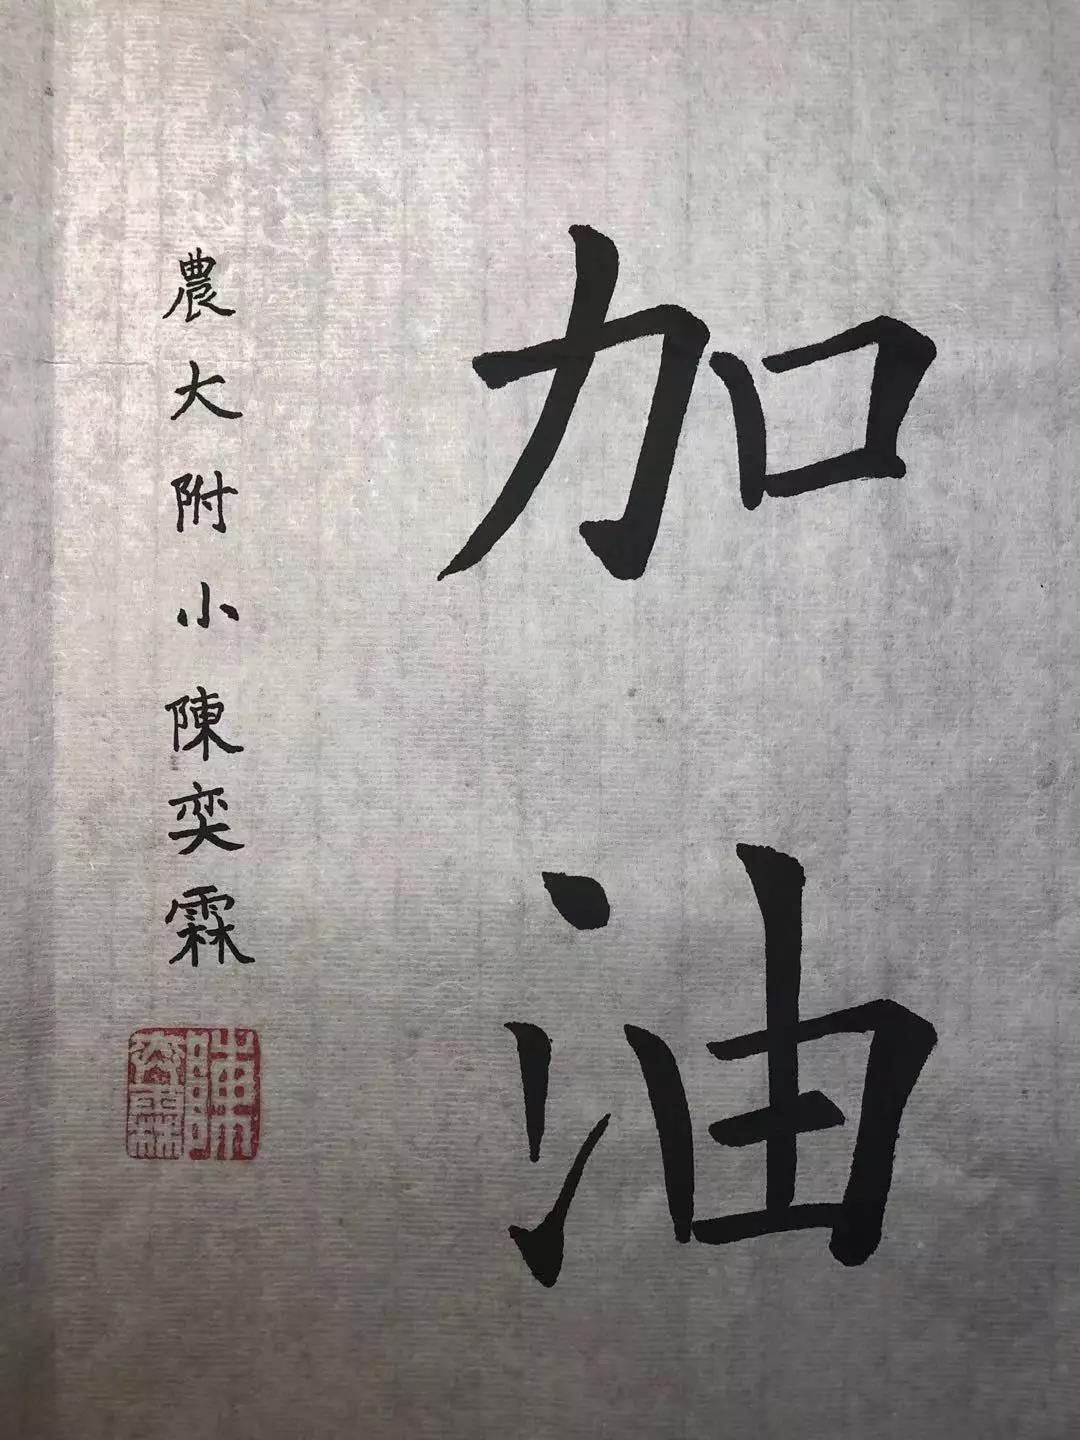 加油
農大附小陳奕霖
陳奕霖